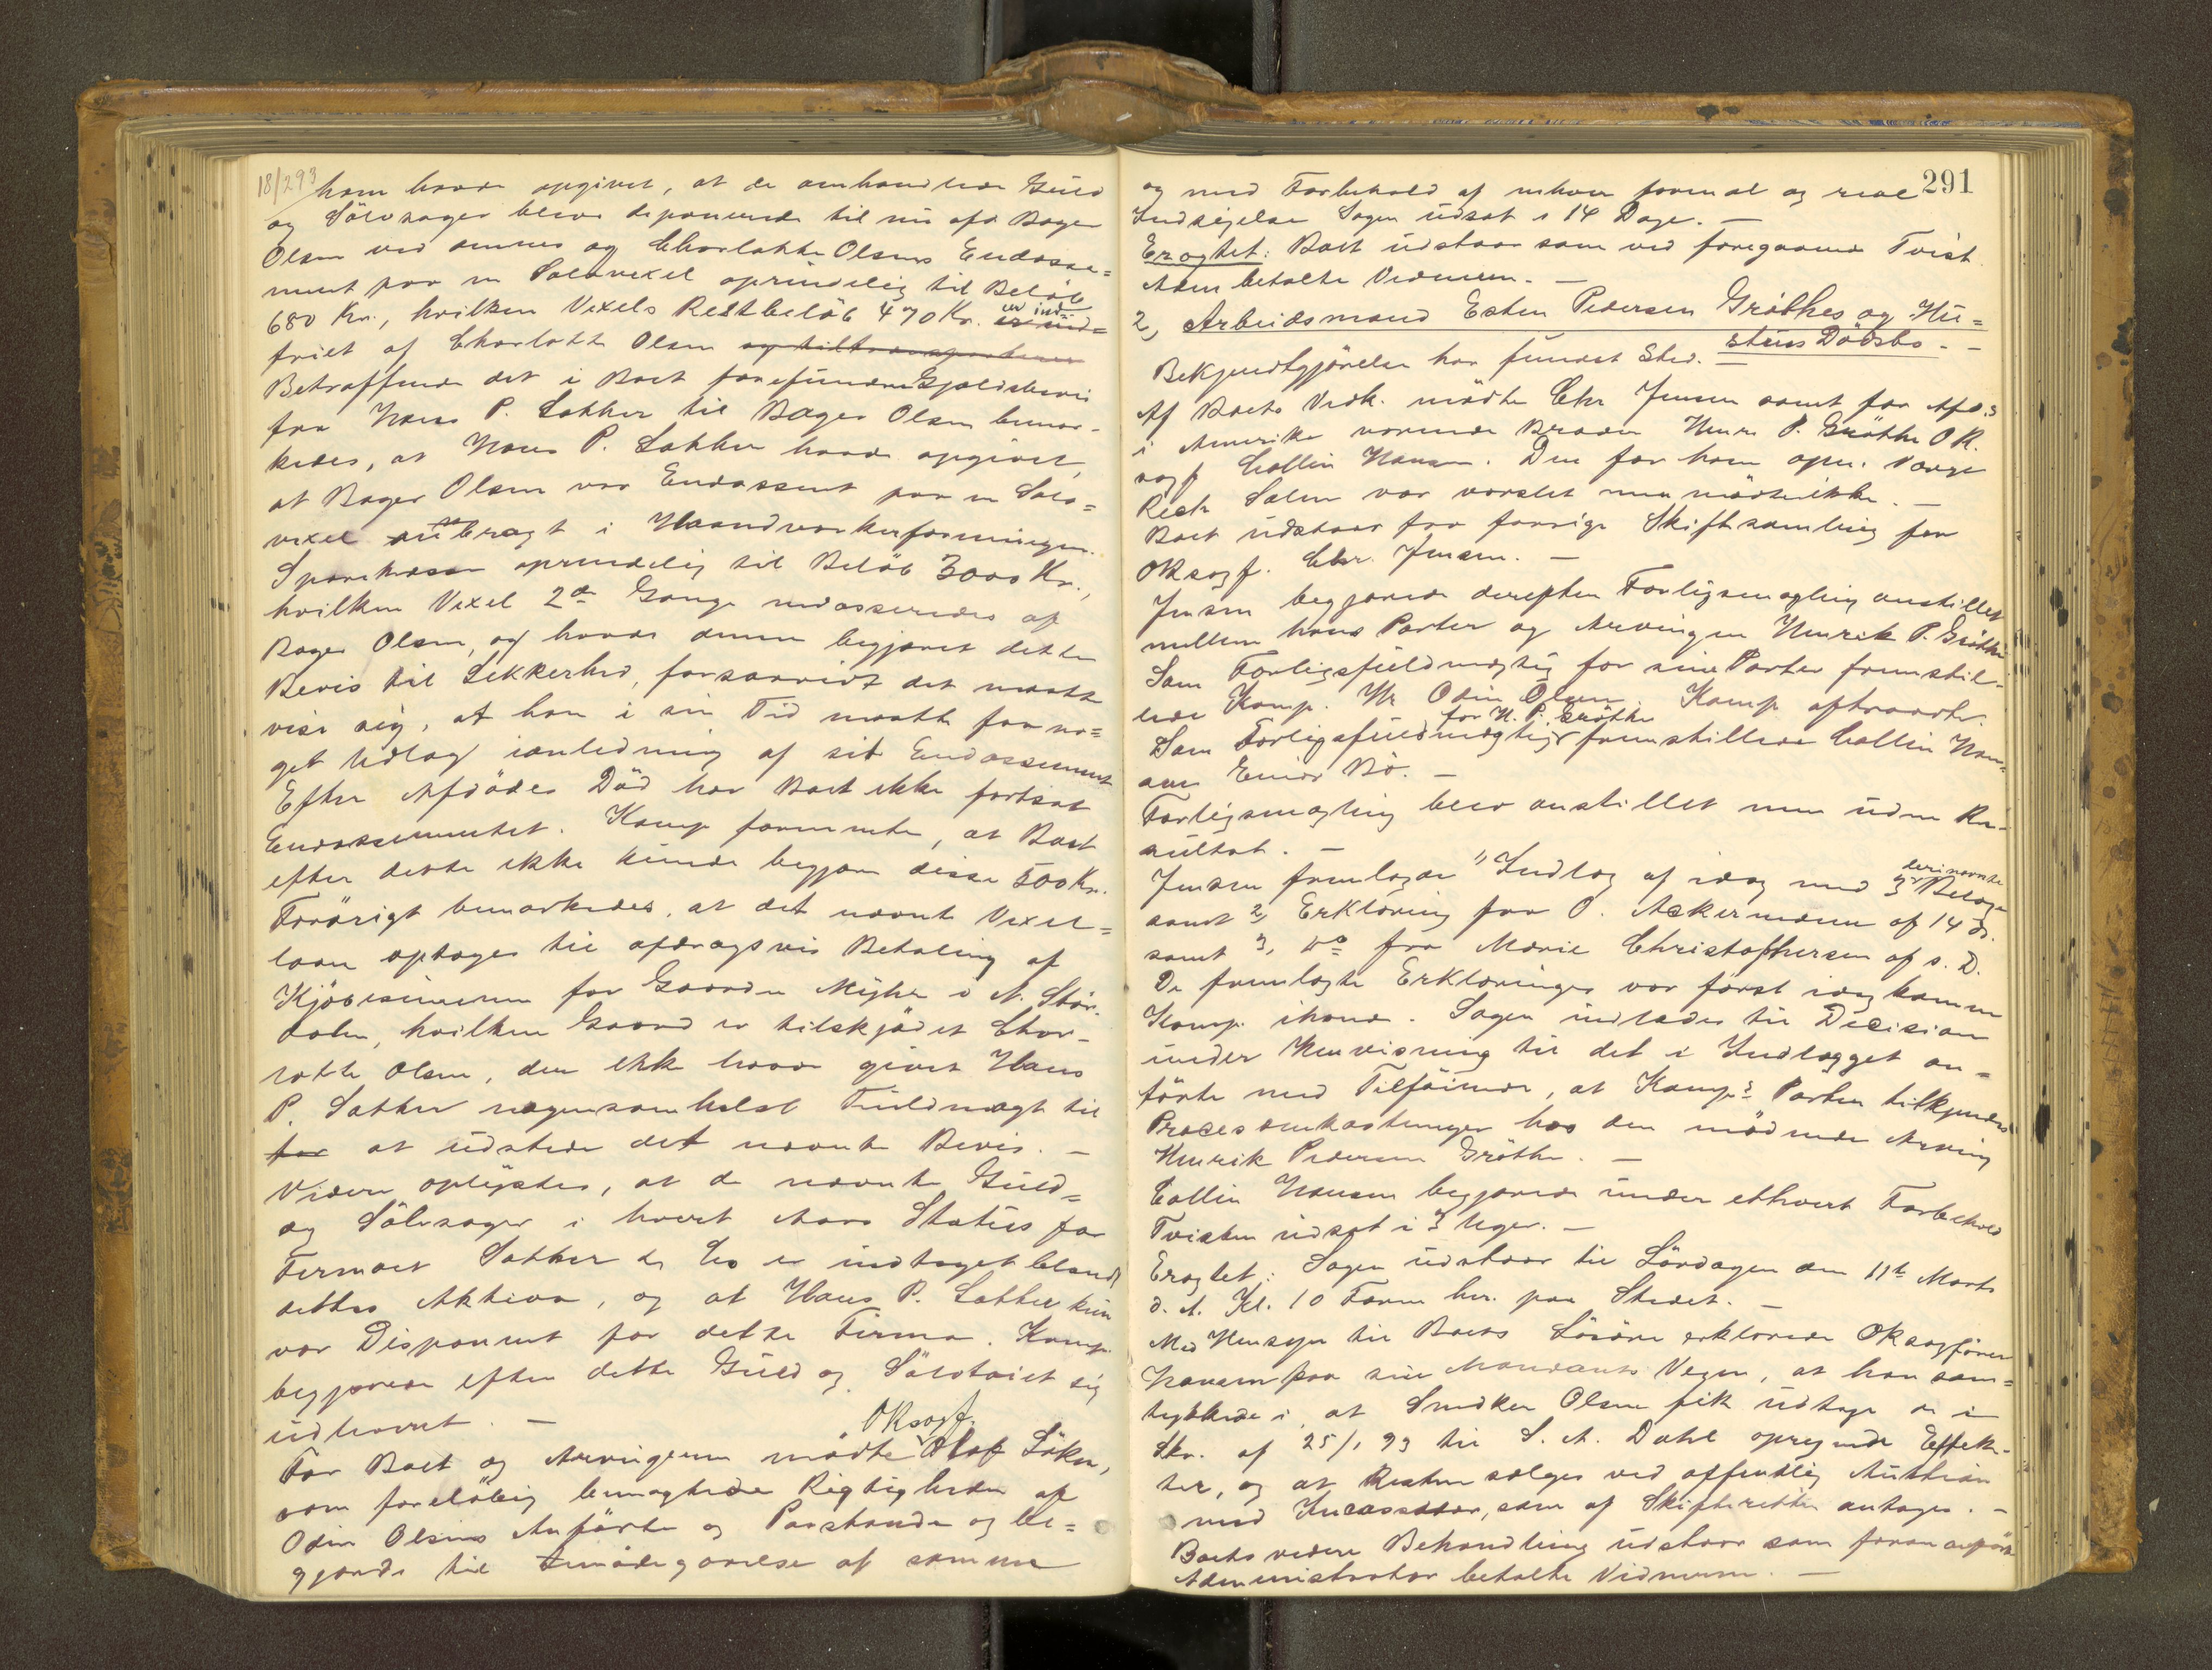 18/293
ham havde opgivet, at de omhandlede Guld
og Sölvsager bleve deponerede til nu afd Bager
Olsen ved dennes og Charlotte Olsens Endosse=
ment paa en Solavexel oprindelig til Beløb
680 Kr., hvilken Vexels Restbeløb 470 Kr. er ind=
friet af Charlotte Olsen og tiltransporteret
Betræffende det i Boet forefundne Gjældsbevis
fra Hans P. Sakker til Bager Olsen bemær-
kedes, at Hans P. Sakker havde opgivet,
at Bager Olsen var Endossent paa en Sola=
vexel anbragt i Haandværkerforeningens
Sparekasse oprindelig til Beløb 3000 Kr.,
hvilken Vexel 2de Gange endosseredes af
Bager Olsen, og havde denne begjæret dette
Bevis til Sikkerhed, forsaavidt det maatte
vise sig, at han i sin Tid maatte faa no=
get Udlæg ianledning af sit Endossement
Efter Afdödes Död har Boet ikke fortsat
Endossementet. Kamp formente, at Boet
efter dette ikke kunde begjære disse 500 Kr.
Forövrigt bemærkedes, at det nævnte Vexel=
laan optoges til afdragsvis Betaling af
Kjöbesummen for Gaarden Myhr i N. Stör-
dalen, hvilken Gaard er tilskjödet Char-
lotte Olsen, der ikke havde givet Hans
P. Sakker nogensomhelst Fuldmagt til
for at udstede det nævnte Bevis. –
Videre oplystes, at de nævnte Guld=
og Sölvsager i hvert Aars Status for
Firmaet Sakker & Co er indtaget blandt
dettes Aktiva, og at Hans P. Sakker kun
var Disponent for dette Firma. Kamp
begjærede efter dette Guld og Sölvtöiet sig
udleveret. –
For Boet og Arvingerne mödte OKsagf. Olaf Löken,
som foreløbig benægtede Rigtigheden af
Odin Olsens Anførte og Paastande og be=
gjærede til Imödegaaelse af samme
291
og med Forbehold af enhver formel og reel
Indsigelse Sagen udsat i 14 Dage. –
Eragtet: Boet udstaar som ved foregaaende Tvist
Adm betalte Vidnerne. –
2, Arbeidsmand Esten Pedersen Gröthes og Hu=
strus Dödsbo. –
Bekjendtgjörelse har fundet Sted. –
Af Boets Vedk. mödte Chr Jensen samt for Afd.s
i Amerika værende Broder Henr. P. Gröthe OK.
sagf Collin Hansen. Den for ham opn. Værge
Reck Salen var varslet men mödte ikke. –
Boet udstaar fra forrige Skiftesamling for
OKsagf. Chr. Jensen. –
Jensen begjærede derefter Forligsmægling anstillet
mellem hans Parter og Arvingen Henrik P. Gröthe
Som Forligsfuldmægtig for sine Parter fremstil-
lede Kamp. Hr Odin Olsen. Kamp aftraadte.
Som Forligsfuldmægtig for H. P. Gröthe fremstillede Collin Han-
sen Einar Bö. –
Forligsmægling blev anstillet men uden Re-
sultat. –
Jensen fremlagde 1) Indlæg af idag med 3 deri nævnte Bilage
samt 2, Erklæring fra O. Ackermann af 14 ds.
samt 3, do fra Marie Christophersen af s. D.
De fremlagte Erklæringer var först idag kommen
Kamp. ihænde. Sagen indlades til Decision
under Henvisning til det i Indlægget an=
förte med Tilföiende, at Kamp.s Parter tilkjendes
Procesomkostninger hos den mödende Arving
Henrik Pedersen Gröthe. –
Collin Hansen begjærede under ethvert Forbehold
Tvisten udsat i 3 Uger. –
Eragtet: Sagen udstaar til Lördagen den 11te Marts
d. A. Kl. 10 Form. her paa Stedet. –
Med Hensyn til Boets Lösöre erklærede OKsagförer
Hansen paa sin Mandants Vegne, at han sam=
tykkede i, at Smeden Olsen fik udtage de i
Skr. af 25/1 93 til S. A. Dahl opregnede Effek-
ter, og at Resten sælges ved offentlig Auktion
med Incassator, som af Skifteretten antages. –
Boets videre Behandling udstaar som foran anfört
Administrator betalte Vidnerne. –